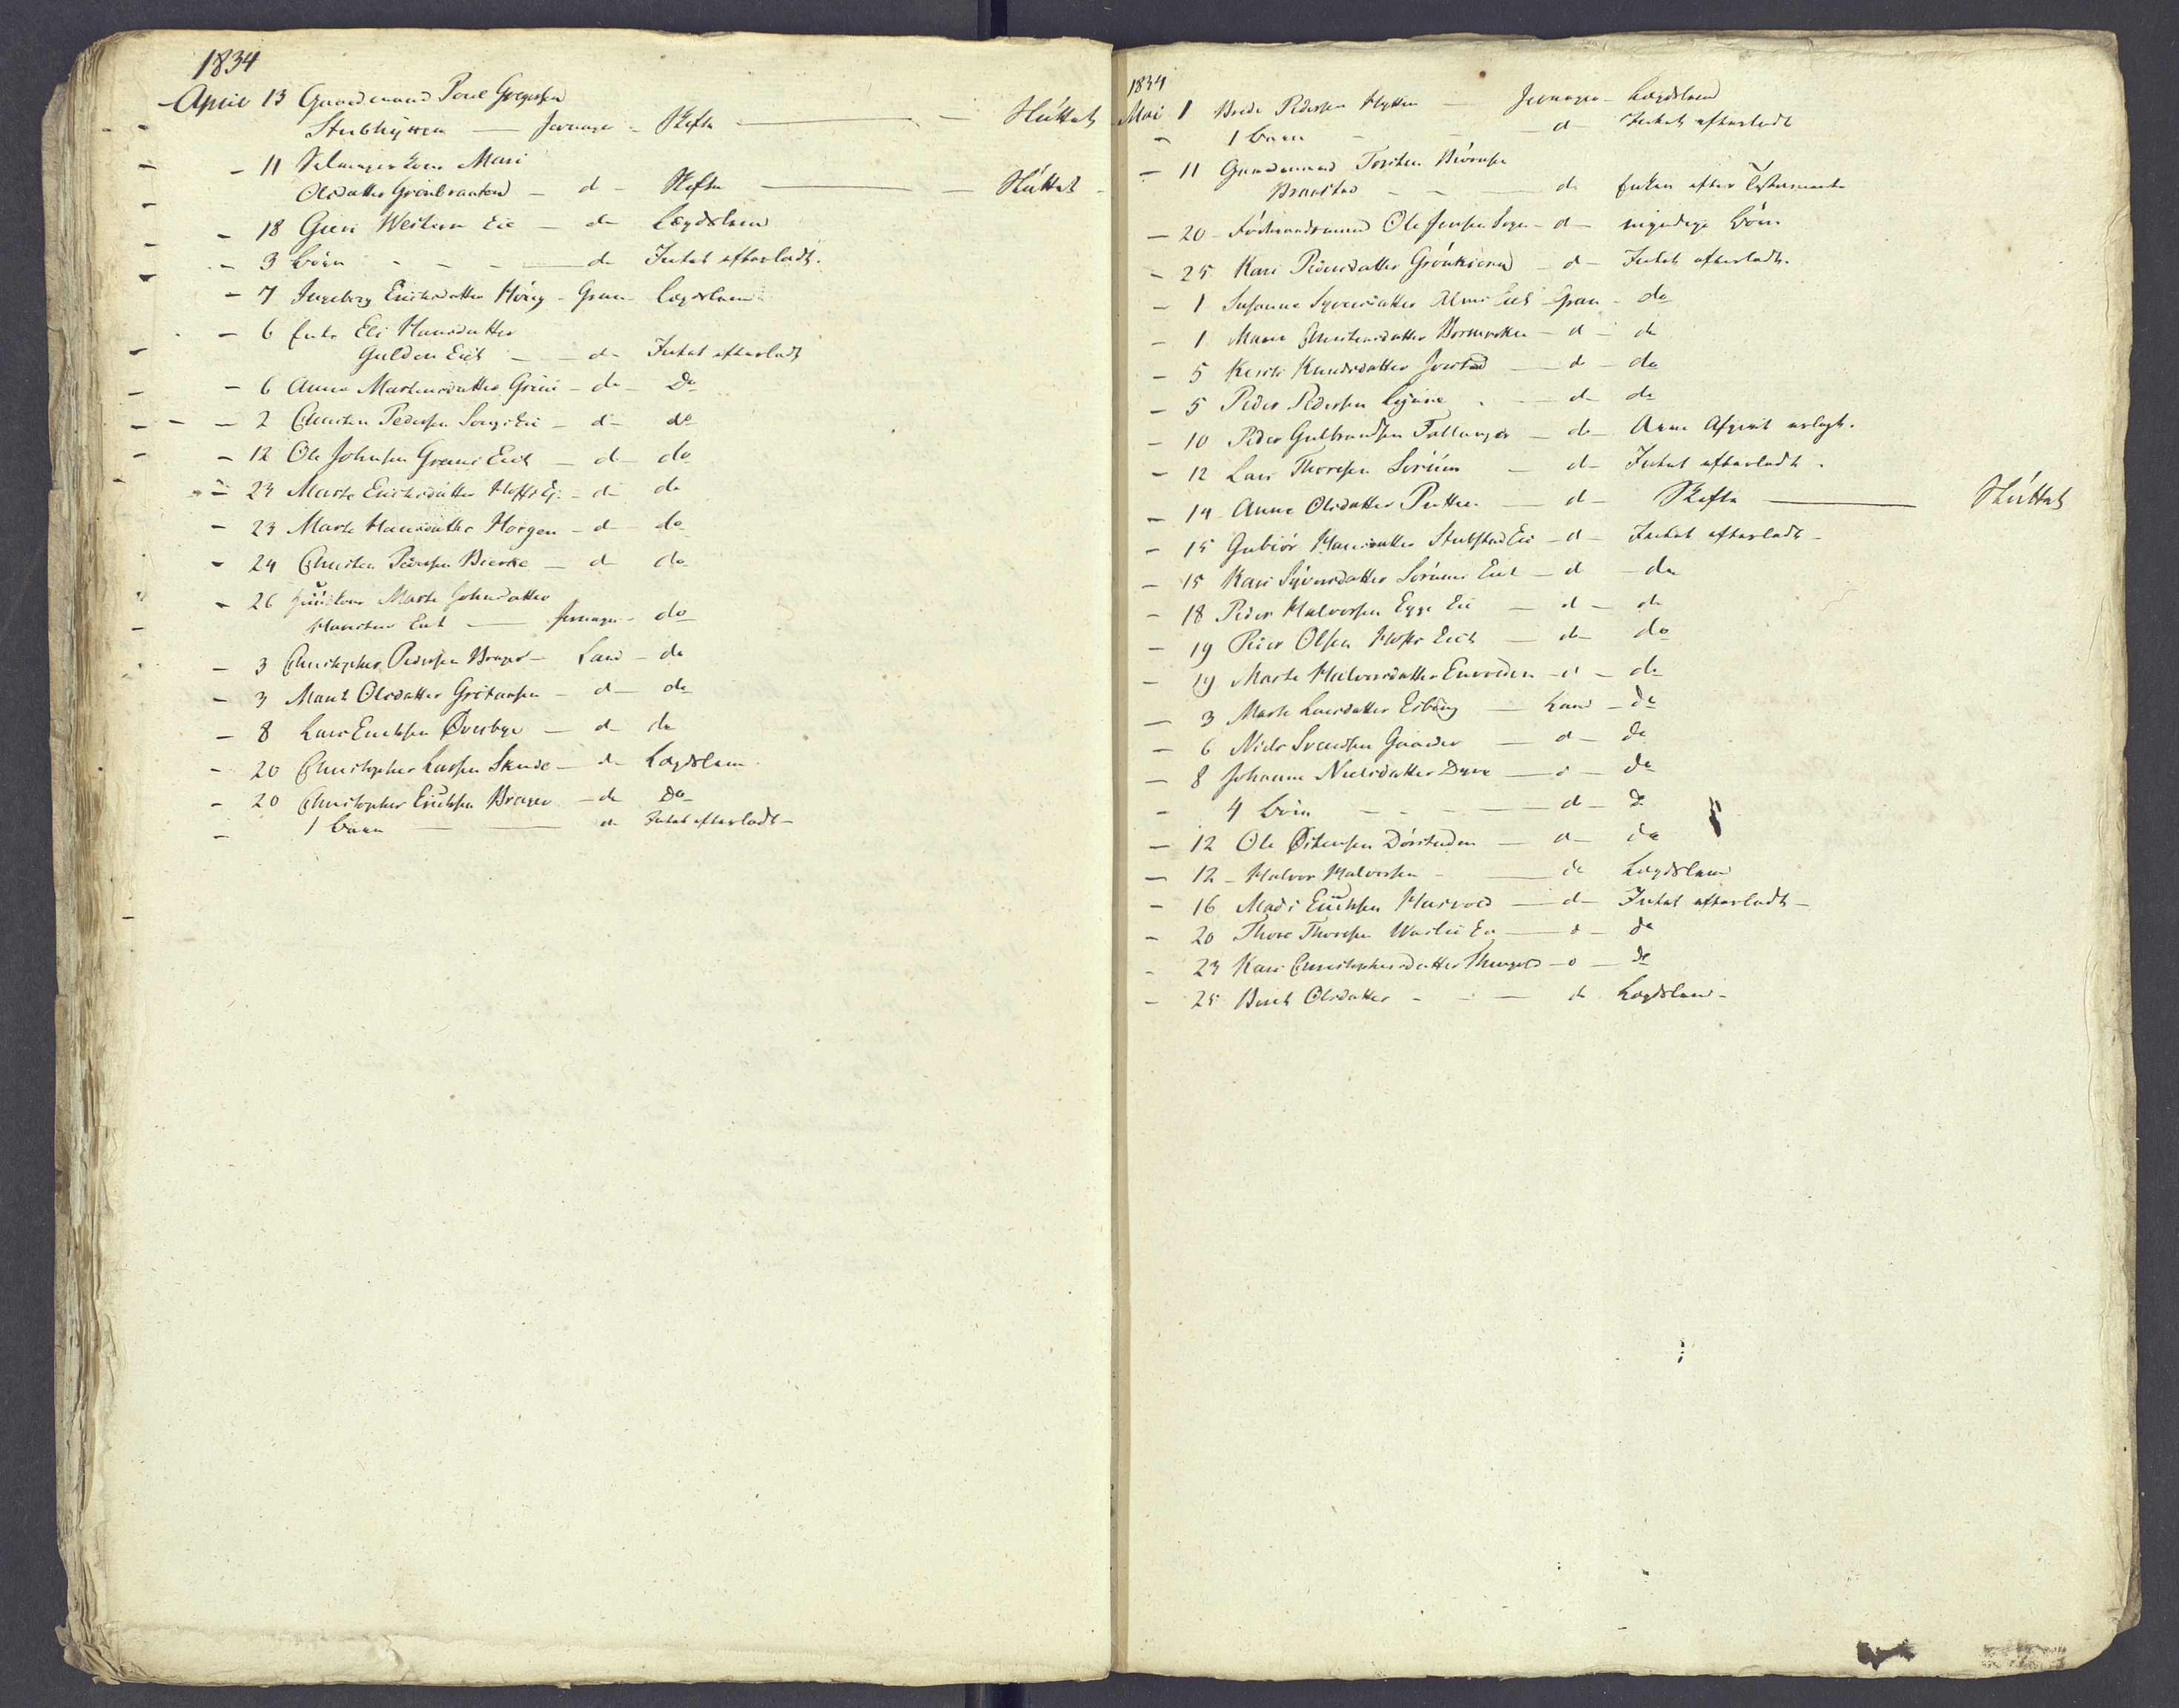 1834
April 13 Gaardmand Poul Gregersen
Stubhytten — Jevnager - Skifte — Sluttet
- 11 Selveierkone Mari
Olsdatter Grønbranten — d - Skifte — Sluttet
- 18 Guri Western Eie — do Lægdslem
- 3 børn — do Intet efterladt.
- 7 Ingeborg Erichsdatter Høug - Gran - Lægdslem
- 6 Enke Eli Hansdatter
Gulden Eiet — do Intet efterladt
- 6 Anne Mortensdatter Grini - do - Do
- 2 Christen Pedersen Eie - d - do
- 12 Ole Johnsen Grans Eiet - d - do
- 23 Marte Erichsdatter Hoffs Ej. - d - do
- 23 Marte Hansdatter Horgen - d - do
- 24 Christen Pedersen Bierke - d do
- 26 Marte Johnsdatter
Eiet — Jevnager - do
- 3 Christopher Pedersen Brager - Land - do
- 3 Marit Olsdatter - d - do
- 8 Lars Erichsen Øverbye - d do
- 20 Christopher Larsen Skute - do Lægdslem
- 20 Christopher Erichsen Brager - do Do
- 1 barn — do Intet efterladt -
1834
Mai 1 Brede Pedersen Hytten — Jevnager - Lægdslem
- 1 barn — d - Intet efterladt
- 11 Gaardmand Torsten
Braastad — do Enken efter Testamente
- 20 - Føderaadsmand Ole Jensen - d - myndige børn
- 25 Kari Pedersdatter - d - Intet efterladt.
- 1 Susanne Syversdatter Alms Eiet - Gran - do
- 1 Marie Christensdatter - d - do
- 5 Kersti Knudsdatter - d - do
- 5 Peder Pedersen — do do
- 10 Peder Gulbrandsen — do - Arve Afgivt erlagt.
- 12 Lars Thoresen Sørum — d - Intet efterladt.
- 14 Anne Olsdatter Putten — d - Skifte — Sluttet
- 15 Gubiør Hansdatter Stubstad Eie - d - Intet efterladt -
- 15 Kari Syversdatter Sørums Eiet - d - do
- 18 Peder Halvorsen Egge Eie — d - do
- 19 Peder Olsen Hoffs Eiet — do do
- 19 Marte Halvorsdatter - d - do
- 3 Marte Larsdatter — Land - do
- 6 Niels Svendsen Gaarder — d - do
- 8 Johanne Nielsdatter Dyre — d - do
- 4 børn — d - do
- 12 Ole — d - do
- 12 - Halvor Halvorsen — do Lægdslem
- 16 Mads Erichsen — d - Intet efterladt -
- 20 Thore Thoresen Eie — d - do
- 23 Kari Christophersdatter - d - do
- 25 Berit Olsdatter — do Lægdslem -